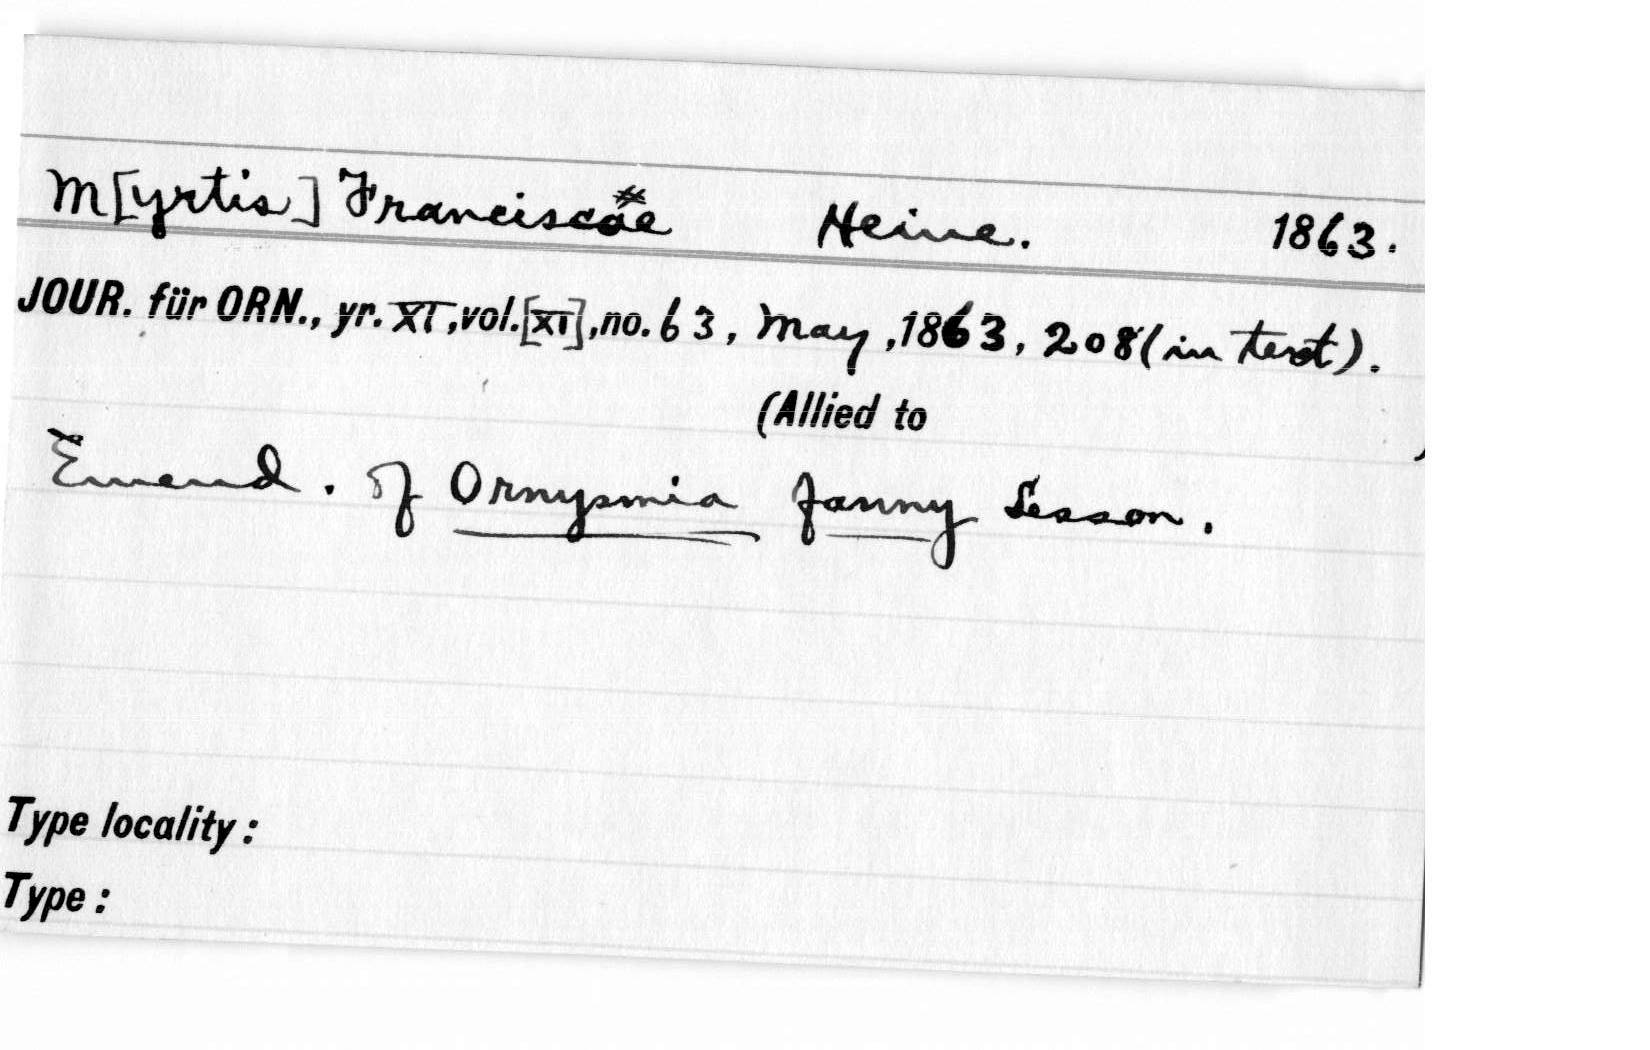 M[yrtis] Franciscae Heine. 1863.
JOUR. für ORN., yr. XI, vol. [XI], no. 63, May, 1863, 208 (in text).
(Allied to )
Emend. of Ornysmia fanny Lesson.
Type locality:
Type: